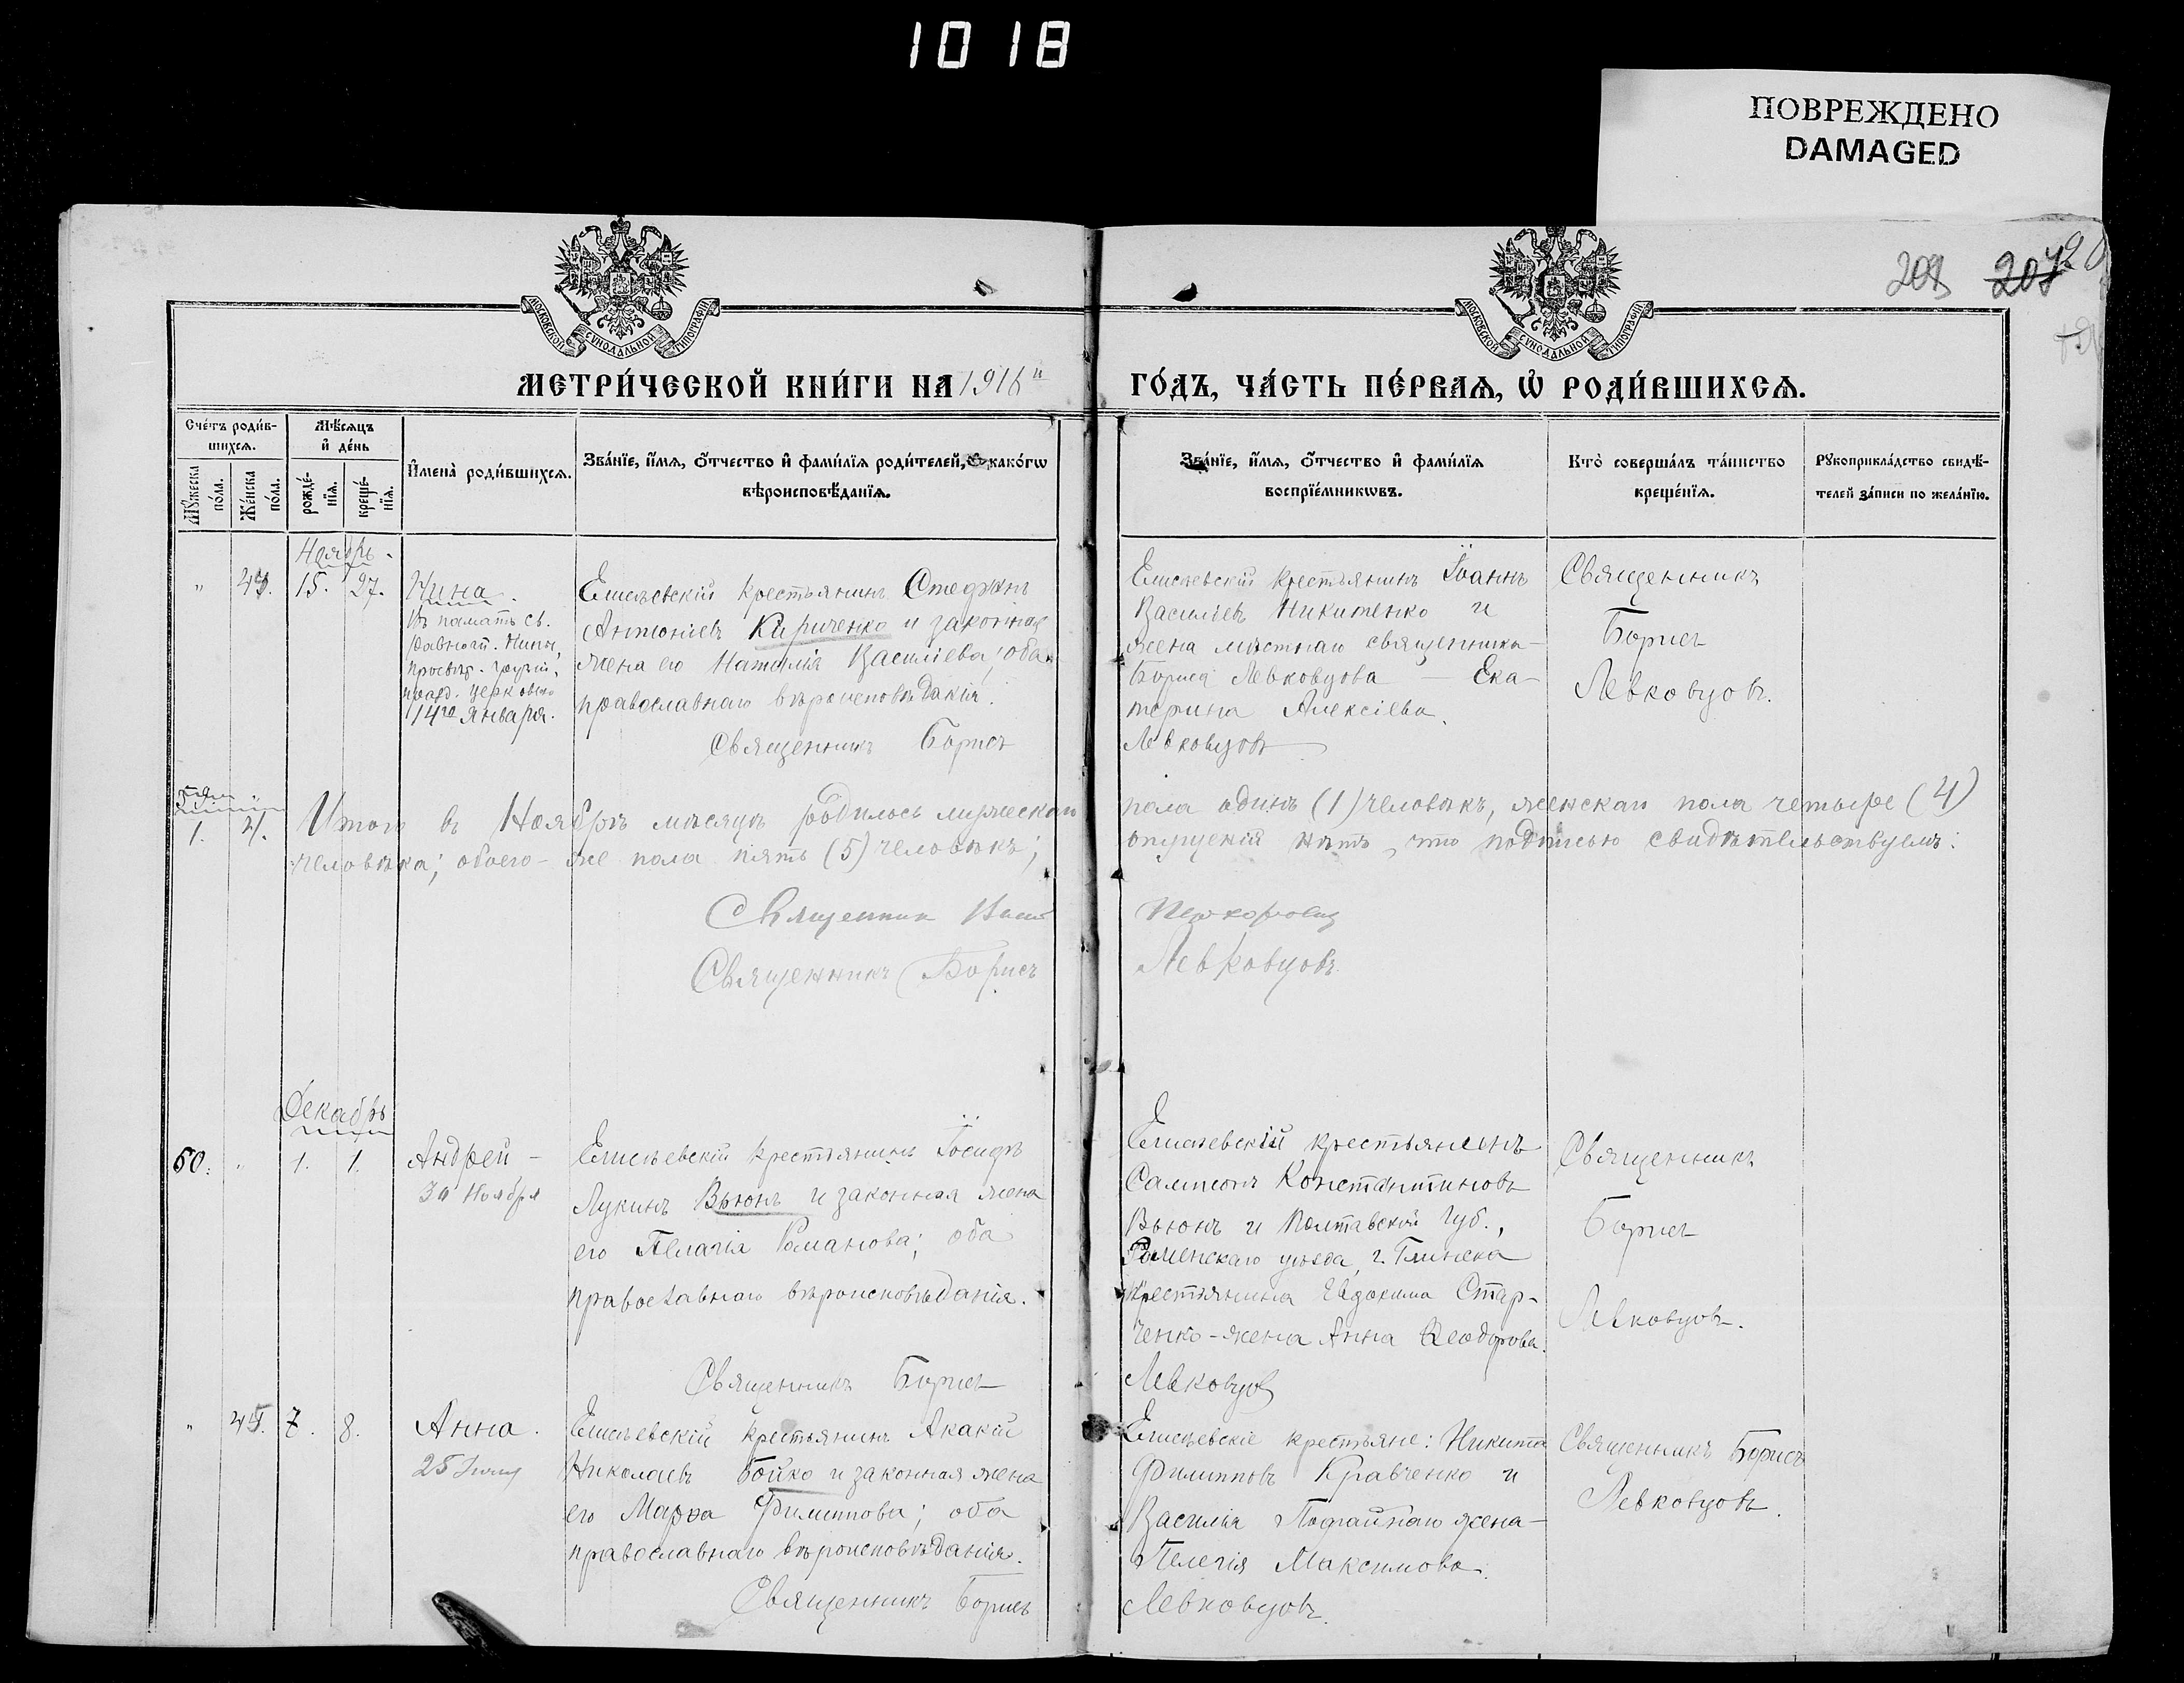 1018
ПОВРЕЖДЕНО
DAMAGED
МОСКОВСКОЙ СѴНОДАЛЬНОЙ ТИПОГРАФІИ
МОСКОВСКОЙ СѴНОДАЛЬНОЙ ТИПОГРАФІИ
МЕТРИ́ЧЕСКОЙ КНИ́ГИ НА 1916й
ГО́ДЪ, ЧА́СТЬ ПЕ́РВАѦ, Ѡ РОДИ́ВШИХСѦ.
Сче́тъ роди́в-
шихсѧ.
Мѣ́сѧцъ
и де́нь
Мꙋ́жеска
по́ла.
Же́нска
по́ла.
рожде́-
нїѧ.
креще́-
нїѧ.
И҆мена̀ роди́вшихсѧ.
Зва́нїе, и҆́мѧ, ѻ҆́тчество и҆ фами́лїѧ роди́телей, и҆ како́гѡ
вѣроисповѣ́данїѧ.
Зва́нїе, и҆́мѧ, ѻ҆́тчество и҆ фами́лїѧ
воспрїе́мникѡвъ.
Кто̀ соверша́лъ та́инство
креще́нїѧ.
Рꙋкоприкла́дство свидѣ́-
телей за́писи по жела́нїю.
Ноябрь.
" 15. 27.
Нина.
Въ память св.
равноап. Нины,
просвѣт. Грузіи,
празд. церковью
14го Января.
Елисѣевскій крестьянинъ Стефанъ
Антоніевъ Кириченко и законная
жена его Наталія Василіева; оба
православнаго вѣроисповѣданія.
Священникъ Борисъ
Елисѣевскій крестьянинъ Іоаннъ
Василіевъ Никитенко и
жена мѣстнаго священника
Бориса Левковцова — Ека-
терина Алексіева.
Левковцовъ
Священникъ
Борисъ
Левковцовъ.
1. 4.
Итого въ Ноябрѣ мѣсяцѣ родилось мужескаго
пола одинъ (1) человѣкъ, женскаго пола четыре (4)
человѣка; обоего-же пола пять (5) человѣкъ;
опущенія нѣтъ, что подписью свидѣтельствуемъ:
Священник
Священникъ Борисъ
Левковцовъ.
Декабрь
60. " 1. 1.
Андрей -
30 Ноября
Елисѣевскій крестьянинъ Іосифъ
Лукинъ Вьюнъ и законная жена
его Пелагія Романова; оба
православнаго вѣроисповѣданія.
Священникъ Борисъ
Елисѣевскій крестьянинъ
Сампсонъ Константиновъ
Вьюнъ и Полтавской губ.,
Роменскаго уѣзда, г. Глинска
крестьянина Евдокима Стар-
ченко - жена Анна Ѳеодорова.
Левковцовъ
Священникъ
Борисъ
Левковцовъ.
" 45. 7. 8.
Анна.
25 Іюля
Елисѣевскій крестьянинъ Акакій
Николаевъ Бойко и законная жена
его Марѳа Филиппова; оба
православнаго вѣроисповѣданія.
Священникъ Борисъ
Елисѣевскіе крестьяне: Никита
Филипповъ Кравченко и
Василія жена -
Пелагія Максимова.
Левковцовъ.
Священникъ Борисъ
Левковцовъ.